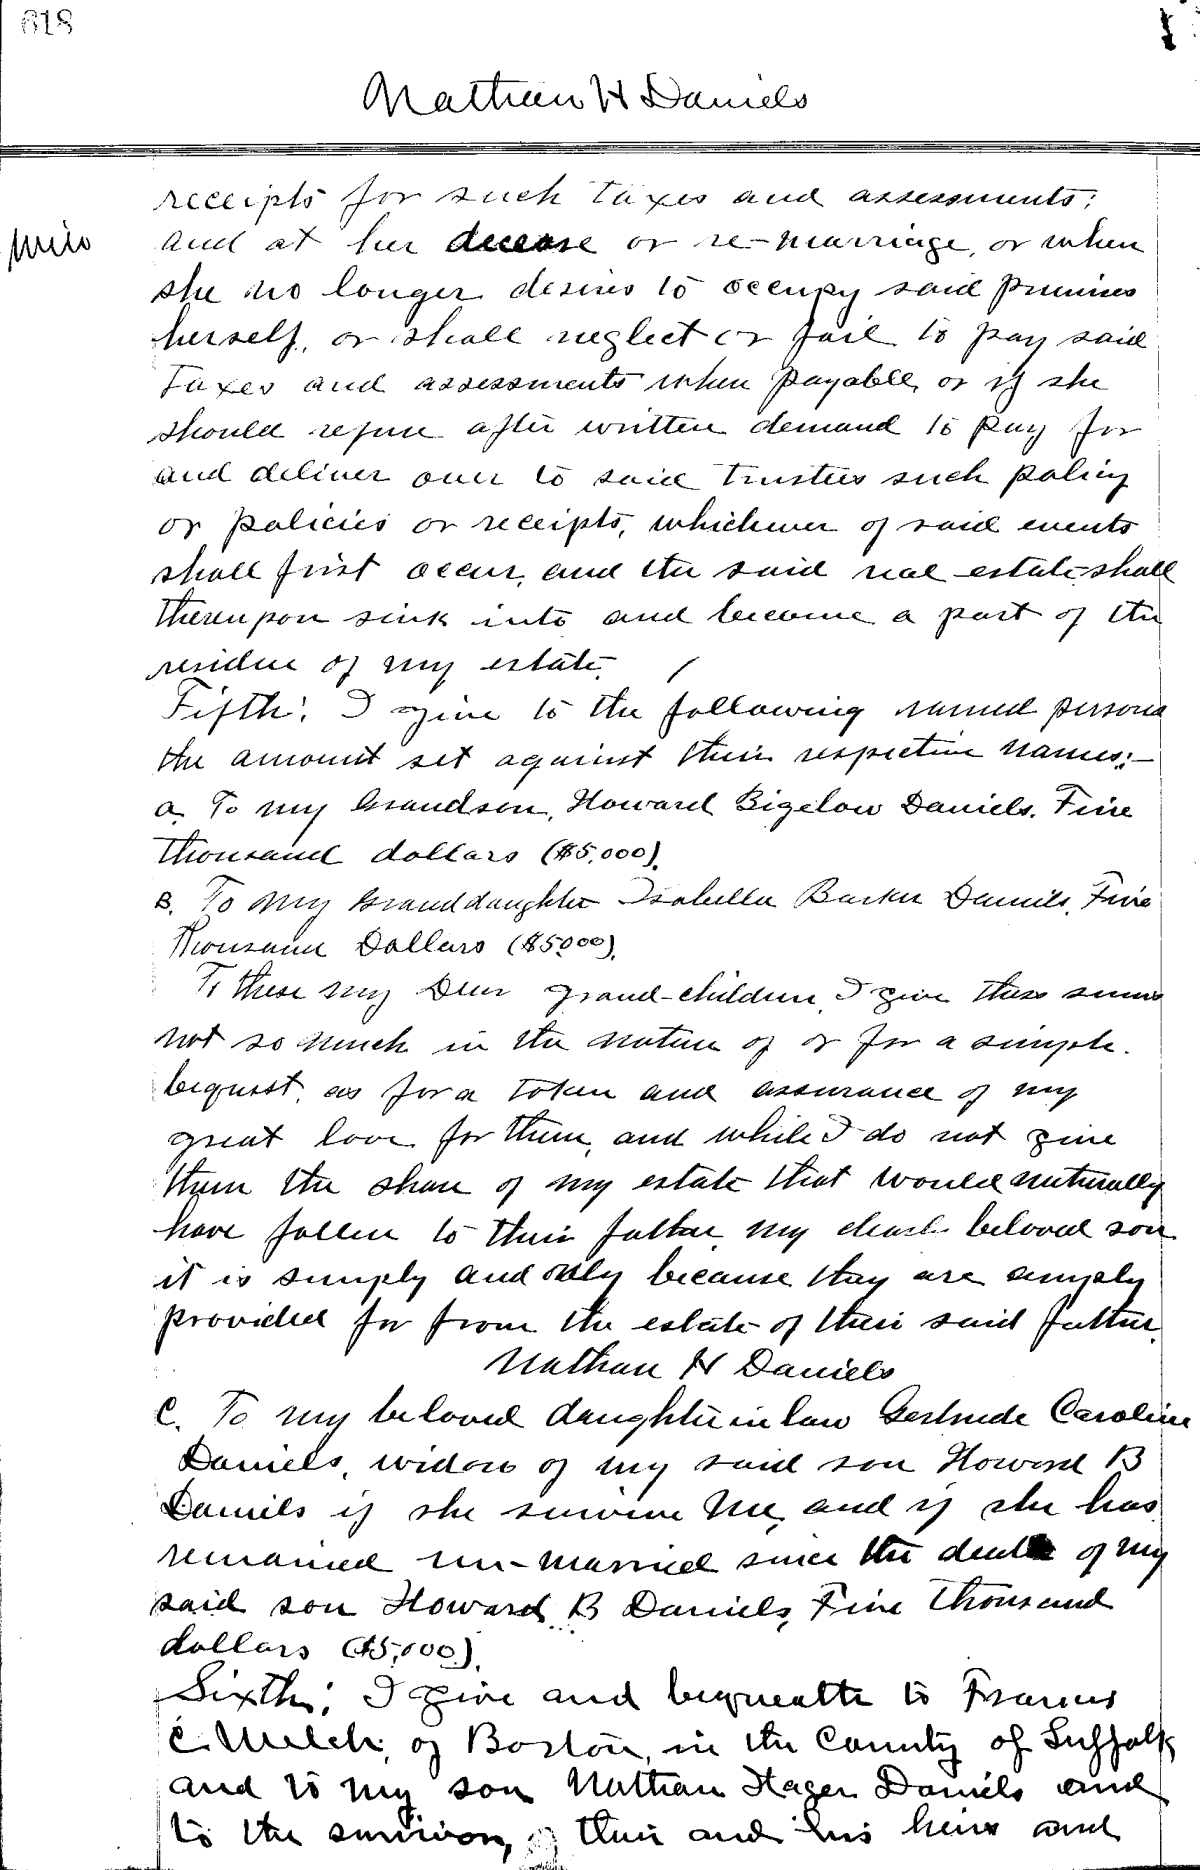 618
Nathan H Daniels
receipts for such taxes and assessments;
and at her decease or re-marriage, or when
she no longer desires to occupy said premises
herself, or shall neglect or fail to pay said
taxes and assessments when payable, or if she
should refuse after written demand to pay for
and deliver over to said trustees such policy
or policies or receipts, whichever of said events
shall first occur, and the said real estate shall
thereupon sink into and become a part of the
residue of my estate.
Fifth: I give to the following named persons
the amount set against their respective names:-
a. To my Grandson, Howard Bigelow Daniels, Five
thousand dollars ($5,000).
B. To my Granddaughter Isabella Barker Daniels, Five
Thousand Dollars ($5000).
To these my Dear grand-children, I give these sums
not so much in the nature of or for a simple
bequest, as for a token and assurance of my
great love for them, and while I do not give
them the share of my estate that would naturally
have fallen to their father, my dearly beloved son
it is simply and only because they are amply
provided for from the estate of their said father.
Nathan H Daniels
C. To my beloved daughter in law Gertrude Caroline
Daniels, widow of my said son Howard B
Daniels if she survive me, and if she has
remained un-married since the death of my
said son Howard B Daniels, Five thousand
dollars ($5,000).
Sixth: I give and bequeath to Francis
C. Welch, of Boston, in the County of Suffolk
and to my son Nathan Hager Daniels and
to the survivor of their and his heirs and